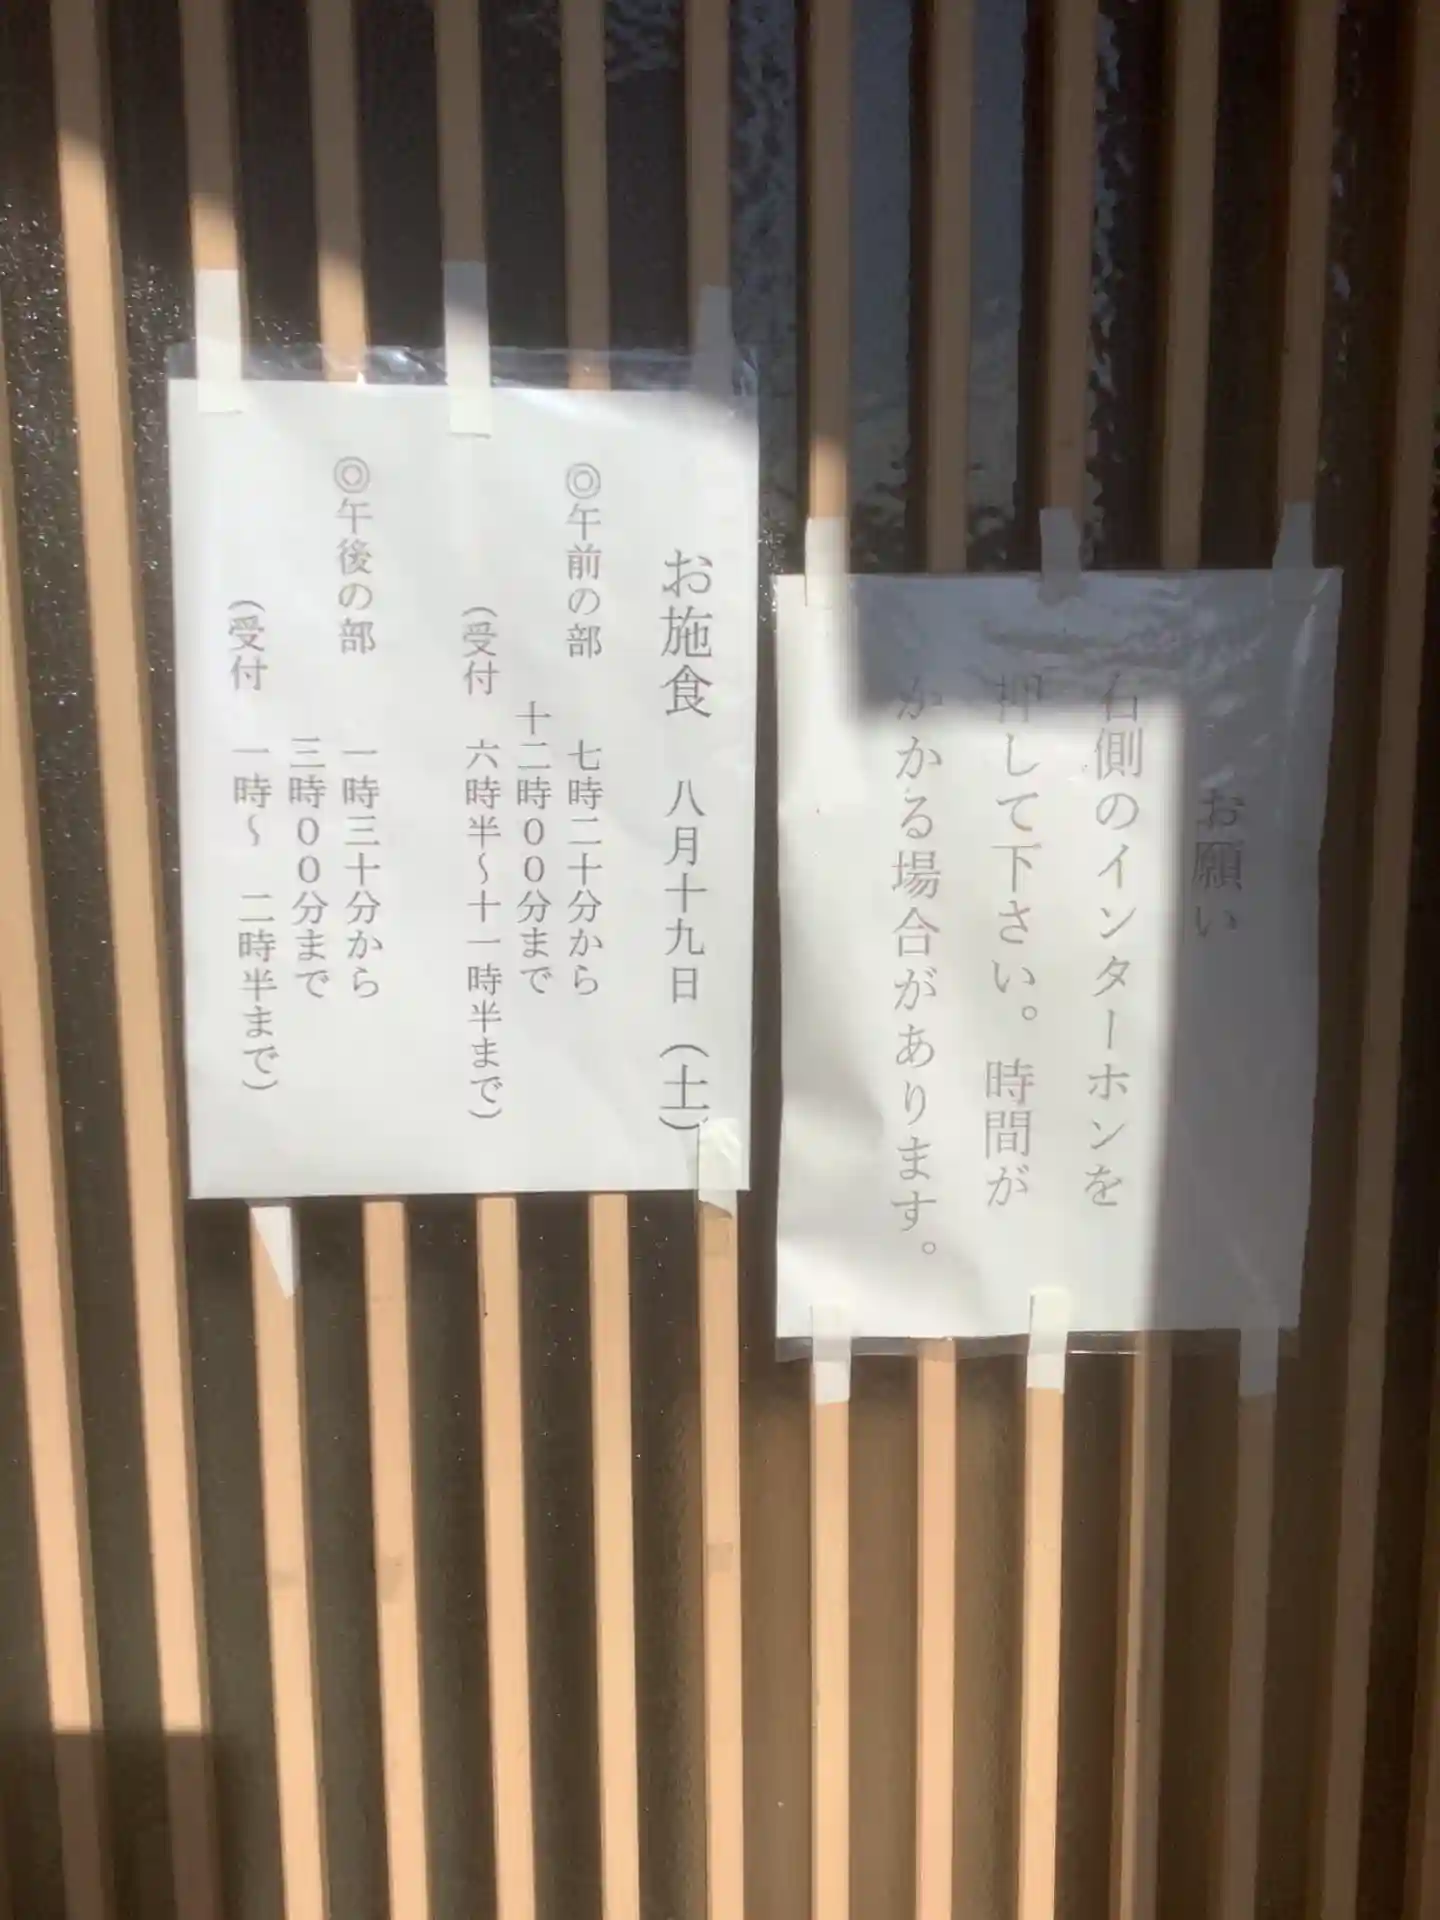 お願い
右側のインターホンを
押して下さい。時間が
かかる場合があります。
お施食 八月十九日（土）
◎午前の部 七時二十分から
十二時００分まで
（受付 六時半～十一時半まで）
◎午後の部 一時三十分から
三時００分まで
（受付 一時～ 二時半まで）